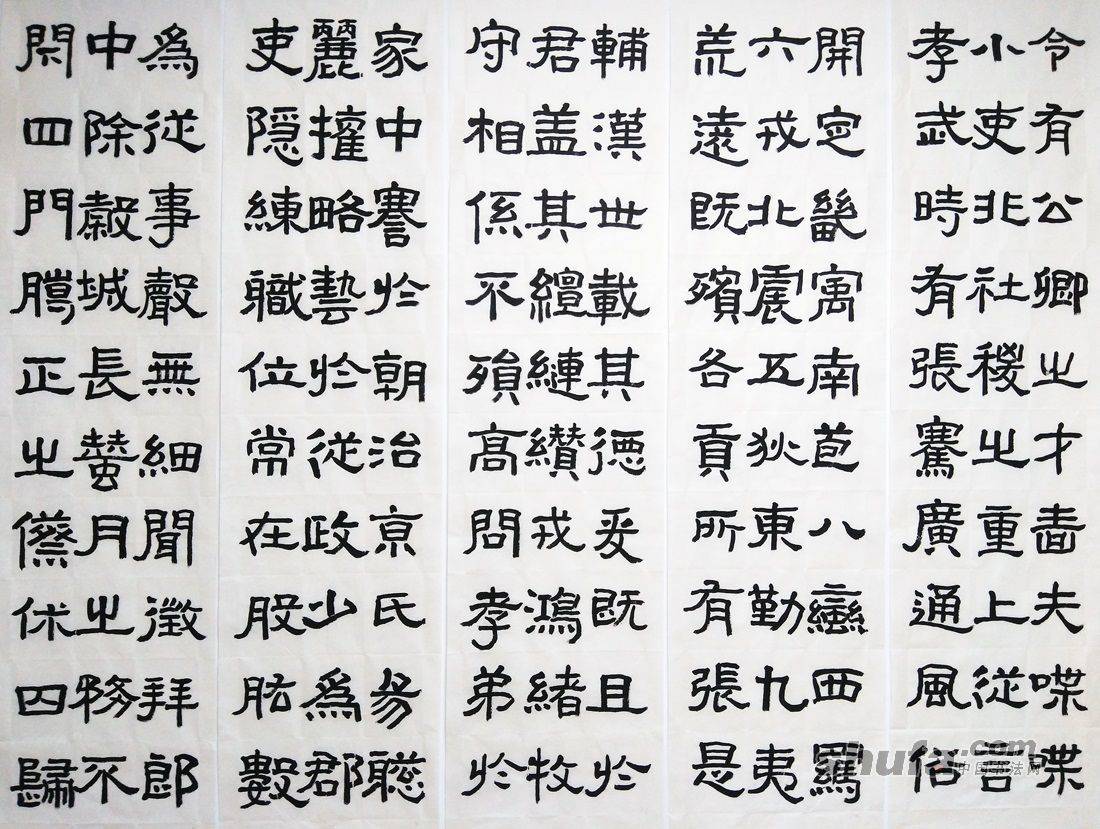 令有公卿之才嗇夫喋喋
小吏非社稷之重上從言
孝武時有張騫廣通風俗
開定畿寓南苞八蠻西羈
六戎北震五狄東勤九夷
荒遠既殯各貢所有張是
輔漢世載其德爰既且於
君盖其繵縺纘戎鴻緒牧
守相係不殞高問孝弟於
家中謇於朝治京氏易聰
麗權略藝於從政少爲郡
吏隱練職位常在股肱數
爲從事聲無細聞徵拜郎
中除穀城長蠶月之務不
閑四門臈正之僚休囚歸
shufa.com
中国书法网